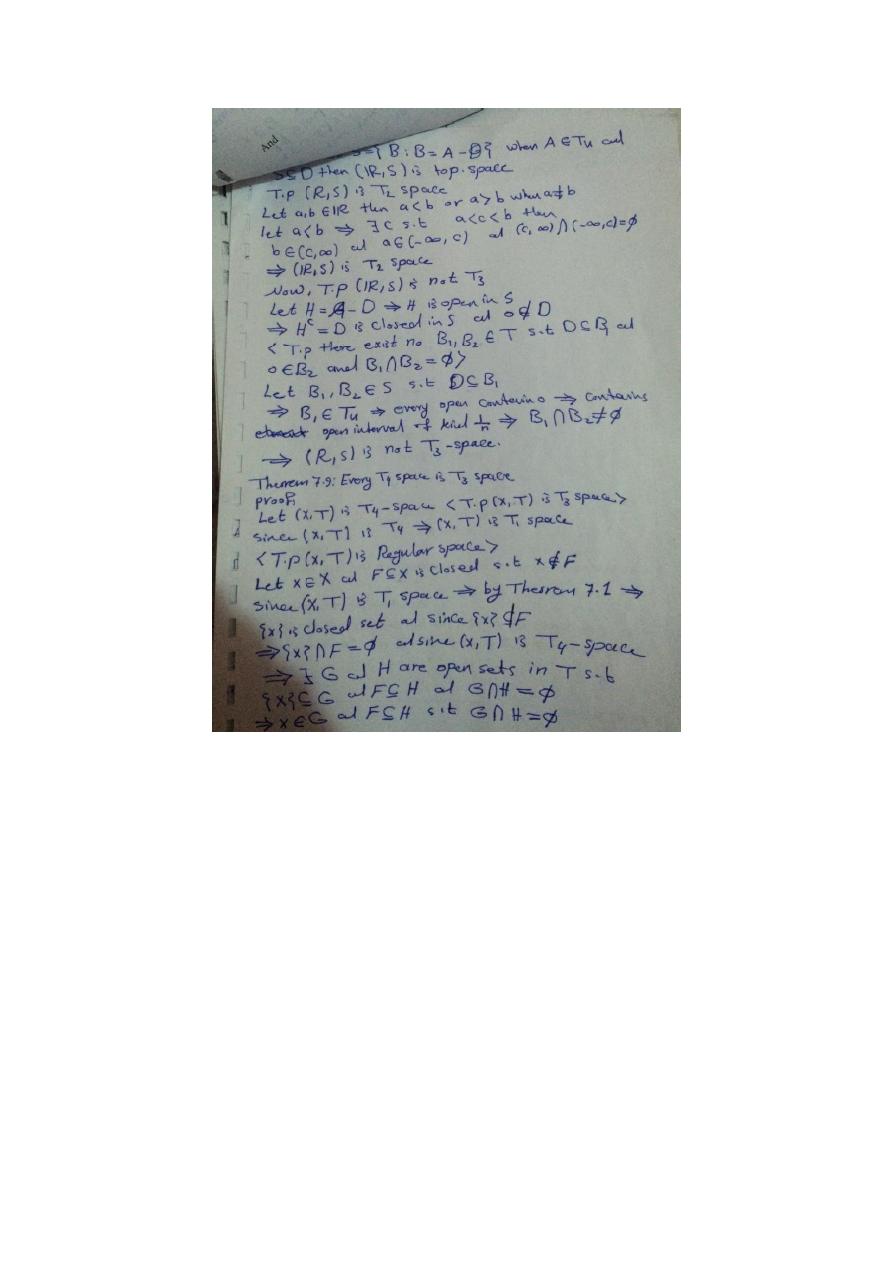 And
={ B : B = A - D} when A ∈ Tu and
S ⊆ D then (IR, S) is top. space
T.p (R, S) is T₂ space
Let a, b ∈ IR then a < b or a > b when a ≠ b
let a < b ⇒ ∃ c s.t a < c < b then
b ∈ (c, ∞) ad a ∈ (-∞, c) ad (c, ∞) ∩ (-∞, c) = ∅
⇒ (IR, S) is T₂ space
Now, T.p (IR, S) is not T₃
Let H = - D ⇒ H is open in S
⇒ Hᶜ = D is closed in S ad 0 ∉ D
< T.p there exist no B₁, B₂ ∈ T s.t D ⊆ B₁ ad
0 ∈ B₂ and B₁ ∩ B₂ = ∅ >
Let B₁, B₂ ∈ S s.t D ⊆ B₁
⇒ B₁ ∈ Tu ⇒ every open contain 0 ⇒ contains
open interval of kind 1/n ⇒ B₁ ∩ B₂ ≠ ∅
⇒ (R, S) is not T₃-space.
Theorem 7.9: Every T₄ space is T₃ space
proof,
Let (X, T) is T₄-space < T.p (X, T) is T₃ space >
since (X, T) is T₄ ⇒ (X, T) is T₁ space
< T.p (X, T) is Regular space >
Let x ∈ X ad F ⊆ X is closed s.t x ∉ F
since (X, T) is T₁ space ⇒ by Theorem 7.1 ⇒
{x} is closed set ad since {x} ⊄ F
⇒ {x} ∩ F = ∅ ad sine (X, T) is T₄-space
⇒ ∃ G ad H are open sets in T s.t
{x} ⊆ G ad F ⊆ H ad G ∩ H = ∅
⇒ x ∈ G ad F ⊆ H s.t G ∩ H = ∅